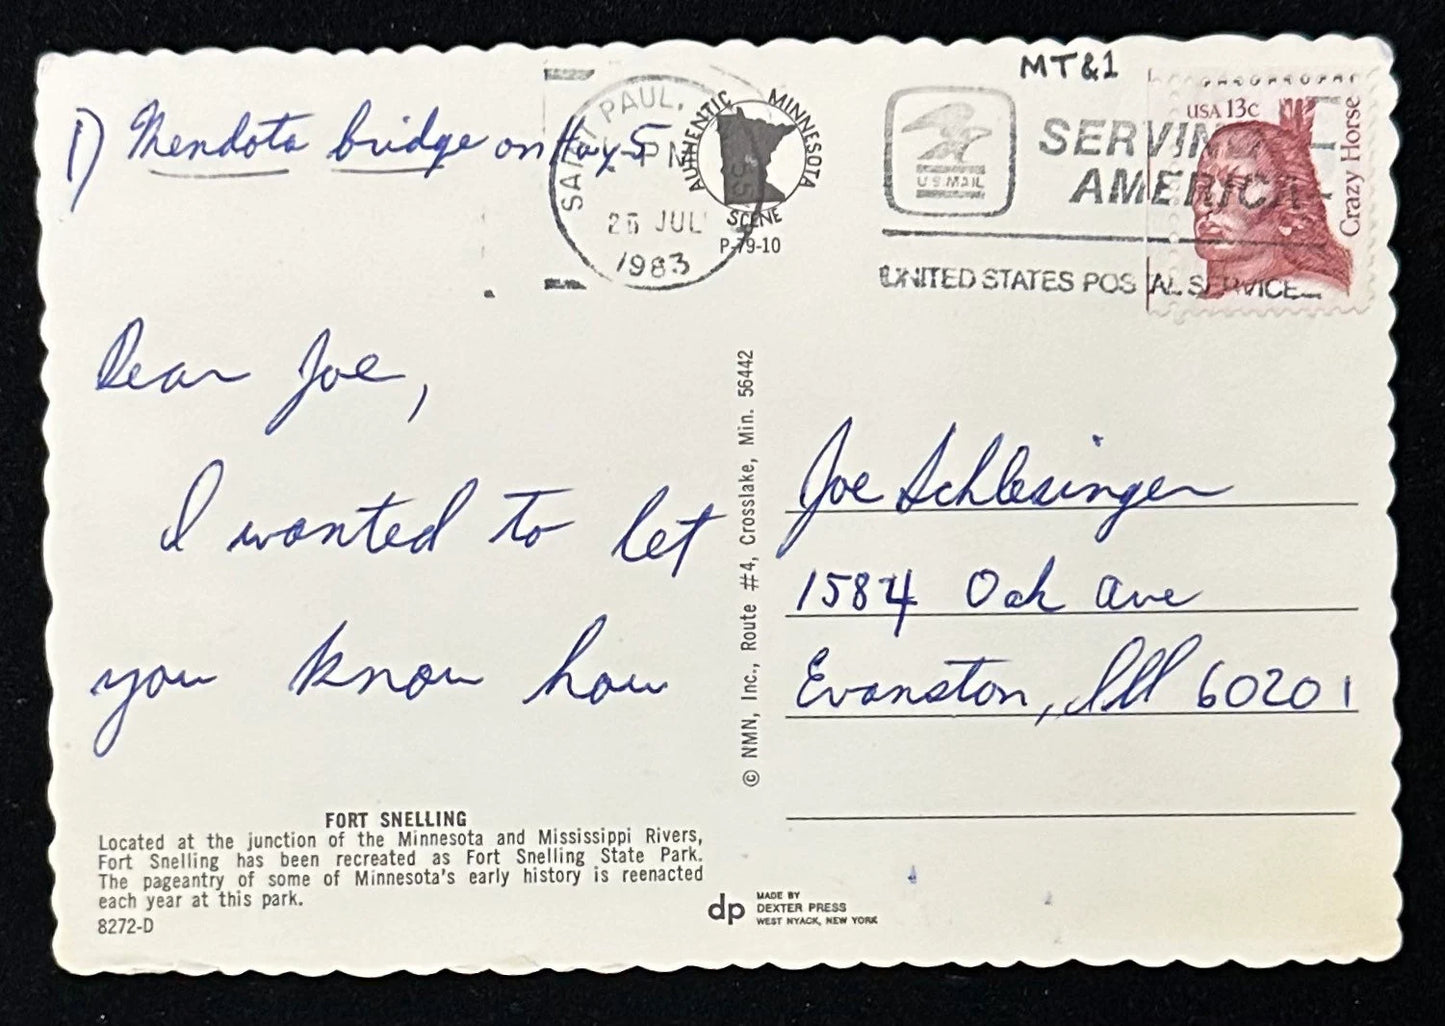 MT&1
1) Mendota bridge on Hwy 5
SAINT PAUL,
PM
25 JUL
1983
AUTHENTIC MINNESOTA
SCENE
P-79-10
U.S.MAIL
SERVING
AMERICA
UNITED STATES POSTAL SERVICE
USA 13c
Crazy Horse
Dear Joe,
I wanted to let
you know how
FORT SNELLING
Located at the junction of the Minnesota and Mississippi Rivers,
Fort Snelling has been recreated as Fort Snelling State Park.
The pageantry of some of Minnesota's early history is reenacted
each year at this park.
8272-D
© NMN, Inc., Route #4, Crosslake, Min. 56442
Joe Schlesinger
1584 Oak Ave
Evanston, Ill 60201
dp
MADE BY
DEXTER PRESS
WEST NYACK, NEW YORK